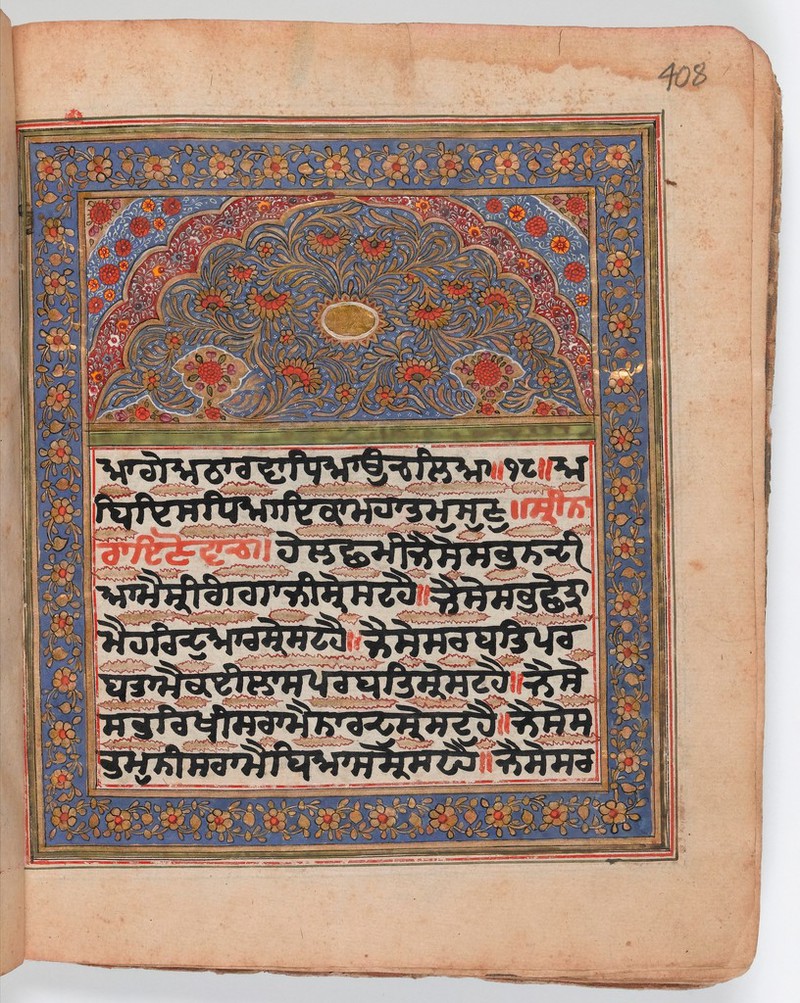 408
ਆਗੇ ਅਠਾਰਵਾ ਧਿਆਉ ਚਲਿਆ॥੧੮॥ ਅ
ਧਿਇ ਸਪਿਆਇ ਕਾ ਮਹਾਤਮੁ ਸੁਣੁ ॥ਸ੍ਰੀ ਨਾ
ਰਾਇਣੋਵਾਚ॥ ਹੇ ਲਛਮੀ ਜੈਸੇ ਸਭੁ ਨਦੀ
ਆ ਮੈ ਸ੍ਰੀ ਗੰਗਾ ਜੀ ਸ੍ਰੇਸਟ ਹੈ॥ ਜੈਸੇ ਸਭੁ ਦੇਤਾ
ਮੈ ਹਰਿਦੁਆਰ ਸ੍ਰੇਸਟ ਹੈ॥ ਜੈਸੇ ਸਰਬਤਿ ਪਰ
ਬਤਾ ਮੈ ਕਈਲਾਸ ਪਰਬਤਿ ਸ੍ਰੇਸਟ ਹੈ॥ ਜੈਸੇ
ਸਭੁ ਰਿਖੀਸਰਾ ਮੈ ਨਾਰਦ ਸ੍ਰੇਸਟ ਹੈ॥ ਜੈਸੇ ਸ
ਭੁ ਮੁਨੀਸਰਾ ਮੈ ਬਿਆਸ ਸ੍ਰੇਸਟ ਹੈ॥ ਜੈਸੇ ਸਰ